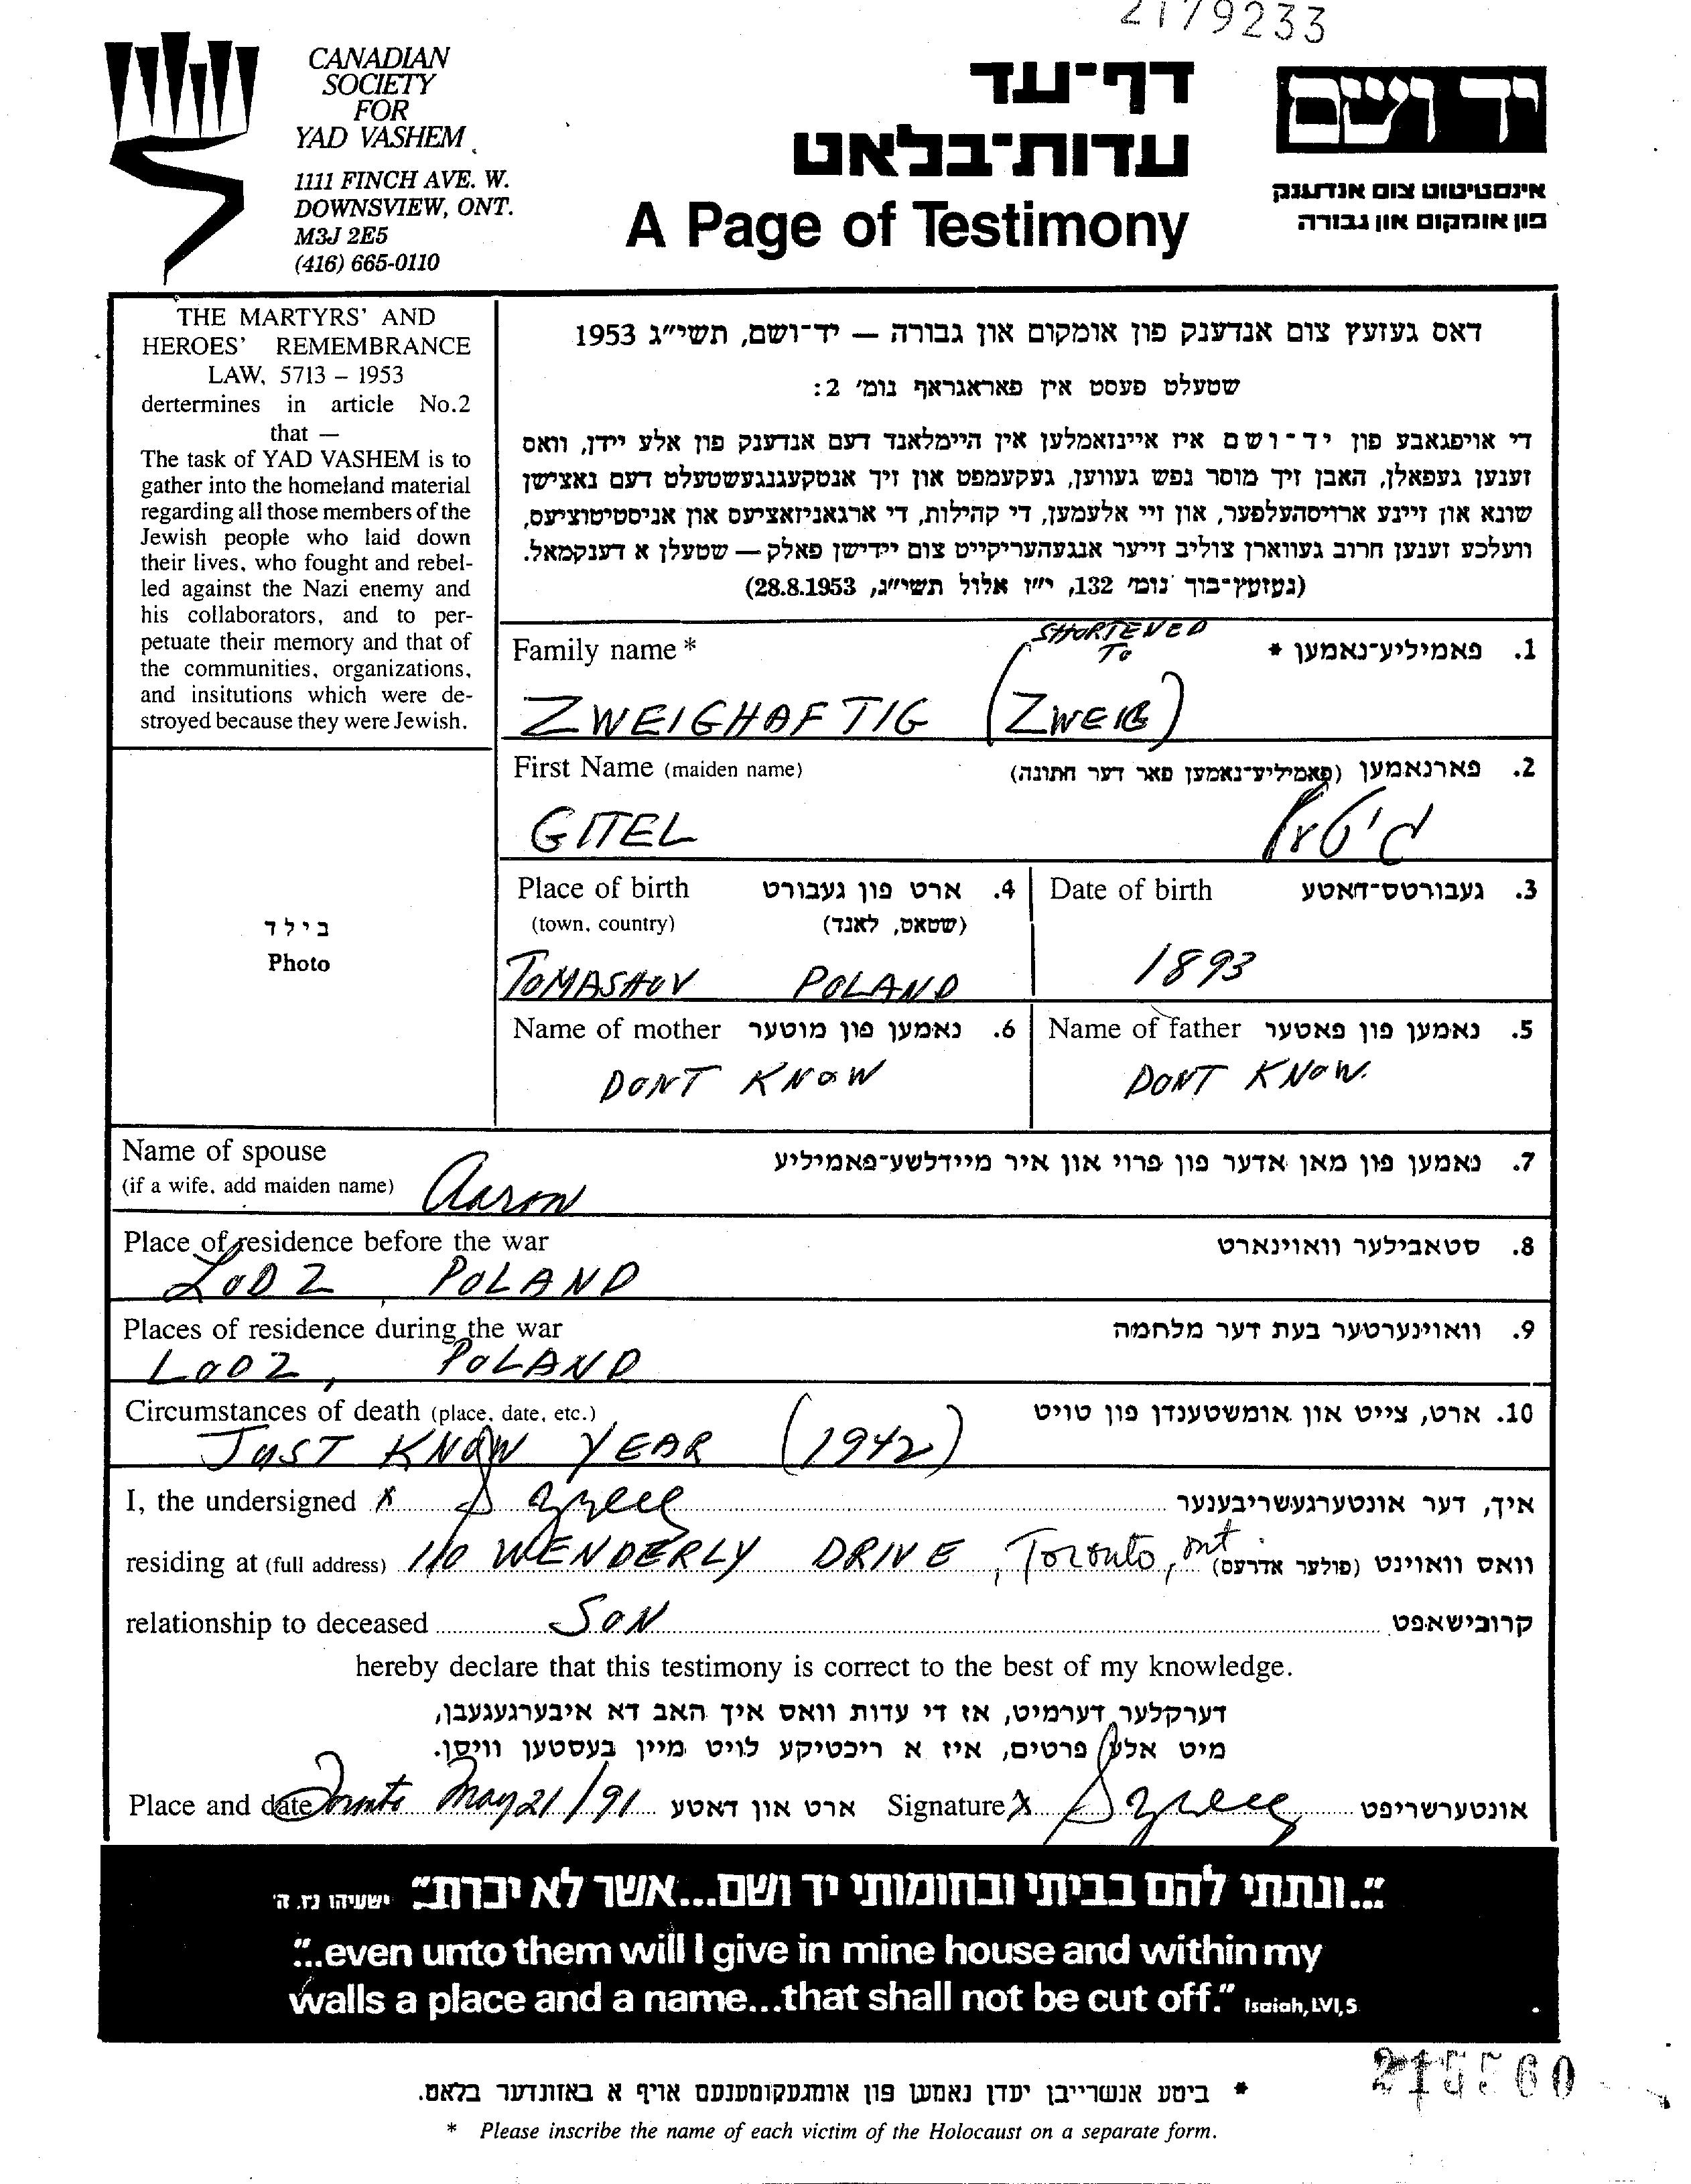 2179233
CANADIAN
SOCIETY
FOR
YAD VASHEM
1111 FINCH AVE. W.
DOWNSVIEW, ONT.
M3J 2E5
(416) 665-0110
דף-עד
עדות-בלאט
A Page of Testimony
יד ושם
אינסטיטוט צום אנדענק
פון אומקום און גבורה
THE MARTYRS' AND
HEROES' REMEMBRANCE
LAW, 5713 – 1953
dertermines in article No.2
that —
The task of YAD VASHEM is to
gather into the homeland material
regarding all those members of the
Jewish people who laid down
their lives, who fought and rebel-
led against the Nazi enemy and
his collaborators, and to per-
petuate their memory and that of
the communities, organizations,
and insitutions which were de-
stroyed because they were Jewish.
דאס געזעץ צום אנדענק פון אומקום און גבורה — יד-ושם, תשי"ג 1953
שטעלט פעסט אין פאראגראף נומ' 2:
די אויפגאבע פון יד-ושם איז איינזאמלען אין היימלאנד דעם אנדענק פון אלע יידן, וואס
זענען געפאלן, האבן זיך מוסר נפש געווען, געקעמפט און זיך אנטקעגנגעשטעלט דעם נאצישן
שונא און זיינע ארויסהעלפער, און זיי אלעמען, די קהילות, די ארגאניזאציעס און אניסטיטוציעס,
וועלכע זענען חרוב געווארן צוליב זייער אנגעהעריקייט צום יידישן פאלק — שטעלן א דענקמאל.
(געזעץ-בוך נומ' 132, י"ז אלול תשי"ג, 28.8.1953)
Family name * פאמיליע-נאמען * .1
SHORTENED
TO
ZWEIGHAFTIG (ZWEIG)
First Name (maiden name) פארנאמען (פאמיליע-נאמען פאר דער חתונה) .2
GITEL גיטל
Place of birth ארט פון געבורט .4
(town, country) (שטאט, לאנד)
TOMASHOV POLAND
Date of birth געבורטס-דאטע .3
1893
Name of mother נאמען פון מוטער .6
DONT KNOW
Name of father נאמען פון פאטער .5
DONT KNOW.
בילד
Photo
Name of spouse נאמען פון מאן אדער פון פרוי און איר מיידלשע-פאמיליע .7
(if a wife, add maiden name) Aaron
Place of residence before the war סטאבילער וואוינארט .8
LODZ, POLAND
Places of residence during the war וואוינערטער בעת דער מלחמה .9
LODZ, POLAND
Circumstances of death (place, date, etc.) ארט, צייט און אומשטענדן פון טויט .10
JUST KNOW YEAR (1942)
I, the undersigned X איך, דער אונטערגעשריבענער
residing at (full address) 110 WENDERLY DRIVE, Toronto, Ont. וואס וואוינט (פולער אדרעס)
relationship to deceased SON קרובישאפט
hereby declare that this testimony is correct to the best of my knowledge.
דערקלער דערמיט, אז די עדות וואס איך האב דא איבערגעגעבן,
מיט אלע פרטים, איז א ריכטיקע לויט מיין בעסטען וויסן.
Place and date Toronto May 21/91 ארט און דאטע Signature X אונטערשריפט
"..ונתתי להם בביתי ובחומותי יד ושם...אשר לא יכרת" ישעיהו נז, ה'
"...even unto them will I give in mine house and within my
walls a place and a name...that shall not be cut off." Isaiah, LVI, 5
* ביטע אנשרייבן יעדן נאמען פון אומגעקומענעם אויף א באזונדער בלאט.
* Please inscribe the name of each victim of the Holocaust on a separate form.